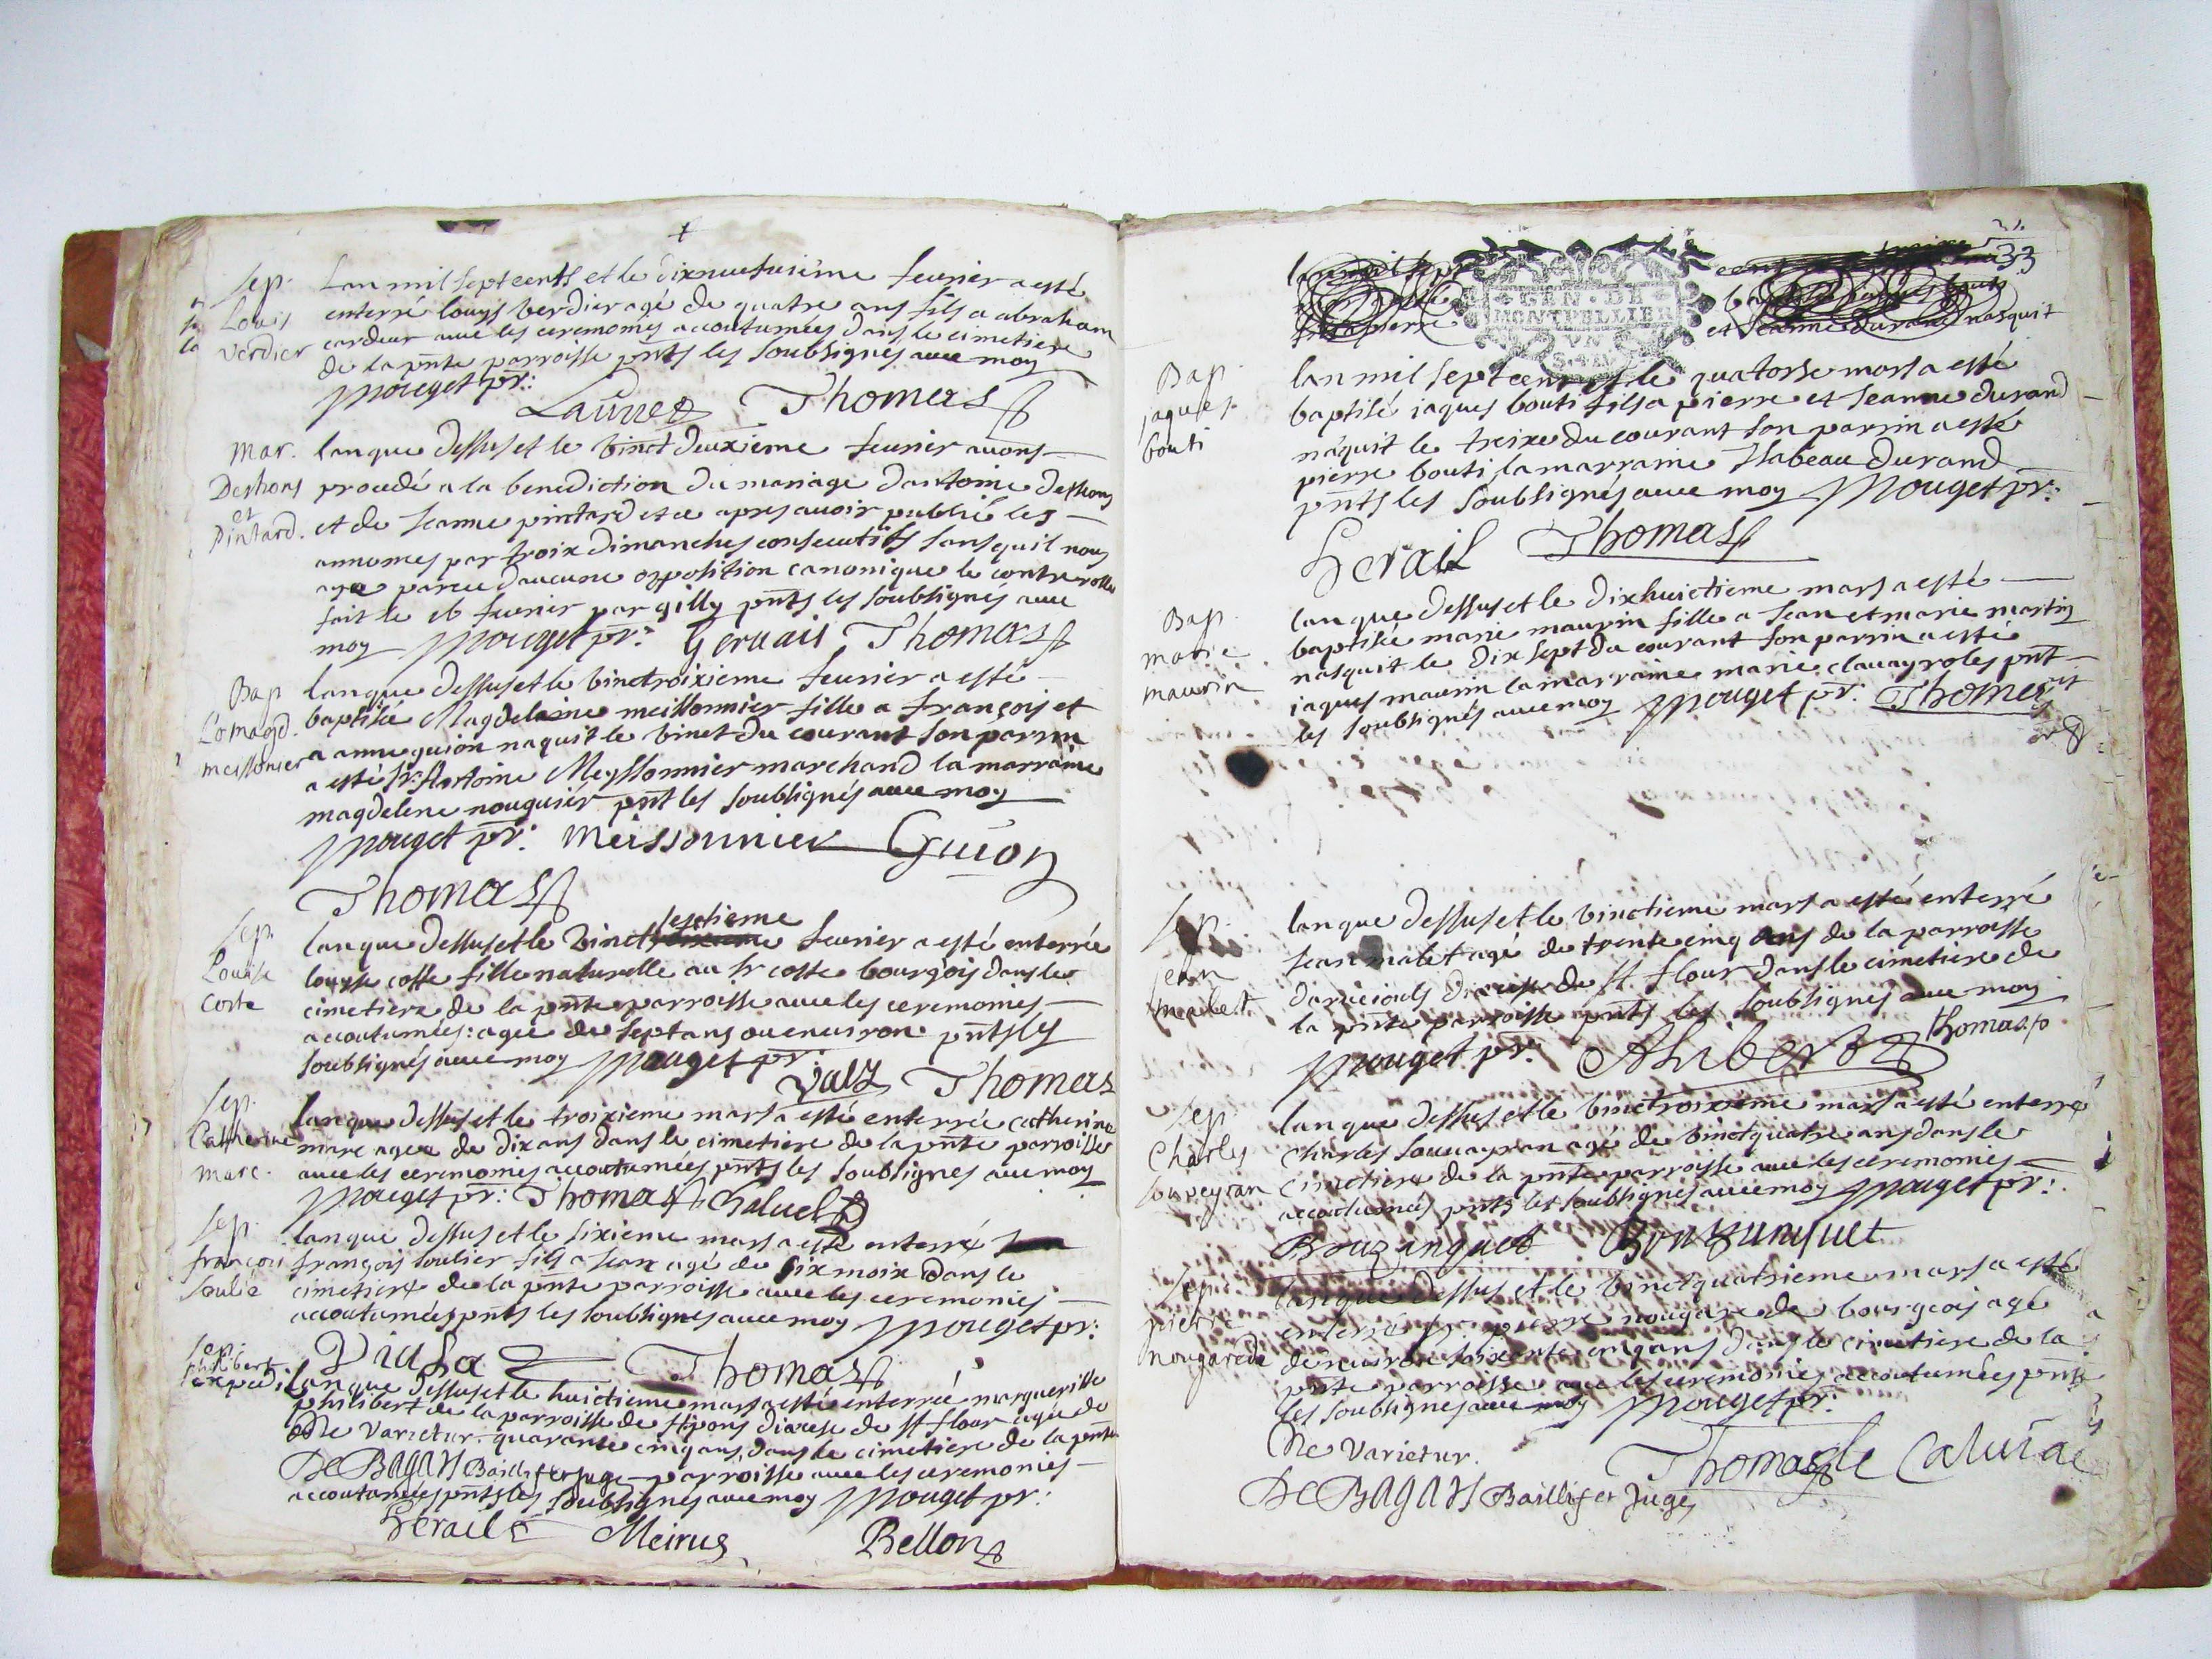 Sep.
Louis
Verdier
Lan mil sept cents et le dixneufuieme feurier a esté
enterré louys verdier agé de quatre ans fils a abraham
cardeur auec les ceremonies accoutumées dans le cimetiere
de la pnte parroisse pnts les soubsignés auec moy
Mouget pr:
Thomas
Mar.
Deshons
et
Pintard.
lan que dessus et le vinct deuxieme feurier auons
procedé a la benediction du mariage dantoine deshons
et de Jeanne pintard et ce apres auoir publié les
annonces par troix dimanches consecutifs sans quil nous
aye parue daucune opposition canonique le controlle
fait le 16 feurier par gilly pnts les soubsignés auec
moy Mouget pr: Geruais Thomas
Bap
magd.
meissonier
lan que dessus et le vinctroixieme feurier a esté
baptisée Magdelaine meissonnier fille a françois et
a anne guion naquit le vinct du courant son parrin
a esté Sr Antoine Meyssonnier marchand la marraine
magdelene nouguier pnt les soubsignés auec moy
Mouget pr: Meissonnier Guion
Thomas
Sep.
Louise
Coste
septieme
lan que dessus et le vinct feurier a esté enterrée
louyse coste fille naturelle au Sr coste bourgois dans le
cimetiere de la pnte parroisse auec les ceremonies
accoutumées: agée de sept ans ou enuiron pnts les
soubsignés auec moy Mouget pr:
Valz Thomas
Sep.
Catherine
Marc.
lan que dessus et le troixieme mars a esté enterrée catherine
marc agée de dix ans dans le cimetiere de la pnte parroisse
auec les ceremonies accoutumées pnts les soubsignés auec moy
Mouget pr: Thomas
Sep.
françois
Soulié
lan que dessus et le sixieme mars a esté enterré
françois soulier fils a Jean agé de six moix dans le
cimetiere de la pnte parroisse auec les ceremonies
accoutumées pnts les soubsignes auec moy Mouget pr:
Thomas
Sep.
philibert
lan que dessus et le huictieme mars a esté enterrée margueritte
philibert de la parroisse de st pons diocese de st flour agée de
Ne Varietur. quarante cinq ans, dans le cimetiere de la pnte
De BAGARS Baillif et Juge parroisse auec les ceremonies
accoutumées pnts les soubsignés auec moy Mouget pr:
Gerail Meirus Bellon
33
GEN · DE
MONTPELLIER
VN
et Jeanne durand nasquit
Bap.
jaques
bouti
lan mil sept cents et le quatorse mars a esté
baptisé jaques bouti fils a pierre et Jeanne durand
naquit le treixe du courant son parrin a esté
pierre bouti la marraine Isabeau durand
pnts les soubsignés auec moy Mouget pr:
Gerail Thomas
Bap.
marie
maurin
lan que dessus et le dixhuictieme mars a esté
baptisée marie maurin fille a Jean et marie martin
nasquit le dix sept du courant son parrin a esté
jaques maurin la marraine marie clauayroles pnt
les soubsignés auec moy Mouget pr: Thomas
Sep.
Jean
malet
lan que dessus et le vinctieme mars a esté enterré
Jean malet agé de trente cinq ans de la parroisse
diocese de st flour dans le cimetiere de
la pnte parroisse pnts les soubsignés auec moy
Mouget pr: Ahibert Thomas
Sep.
Charles
Souveyran
lan que dessus et le vinctroixieme mars a esté enterré
charles souuayran agé de vinctquatre ans dans le
cimetiere de la pnte parroisse auec les ceremonies
accoutumées pnts les soubsignés auec moy Mouget pr:
Bouzanquet Bouzanquet
Sep.
pierre
nougarede
lan que dessus et le vinctquatrieme mars a esté
enterré Sr pierre nougarede bourgeois agé
denuiron soixante cinq ans dans le cimetiere de la
pnte parroisse auec les ceremonies accoutumées pnts
les soubsignés auec moy Mouget pr:
Ne Varietur.
Thomas
De BAGARS Baillif et Juge